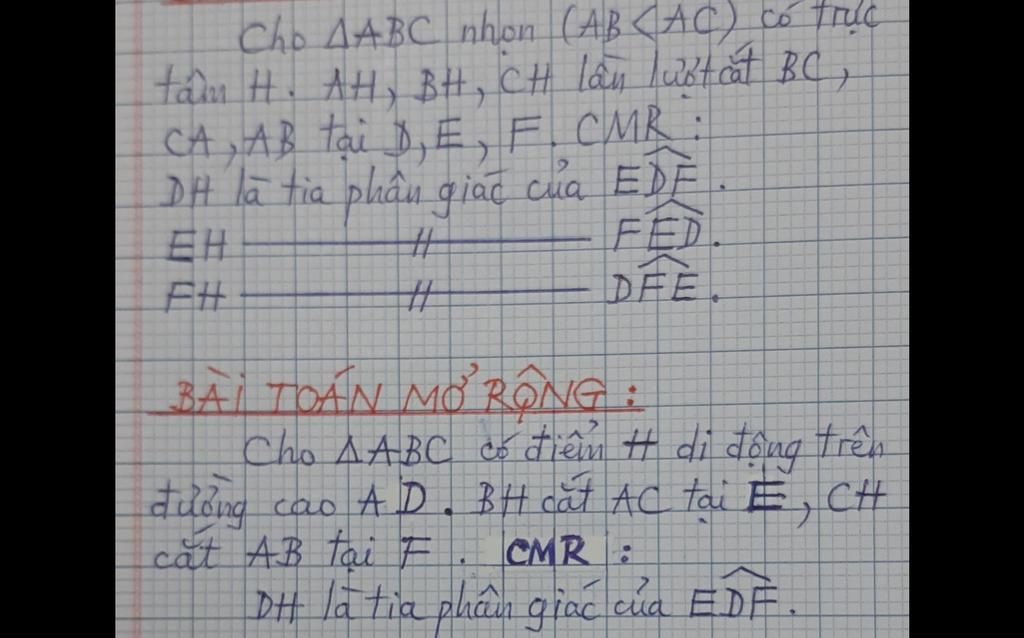 Cho ΔABC nhọn (AB < AC) có trực
tâm H. AH, BH, CH lần lượt cắt BC,
CA, AB tại D, E, F. CMR :
DH là tia phân giác của EDF̂.
EH ——— // ——— FED̂.
FH ——— // ——— DFÊ.
BÀI TOÁN MỞ RỘNG :
Cho ΔABC có điểm H di động trên
đường cao AD. BH cắt AC tại E, CH
cắt AB tại F. CMR :
DH là tia phân giác của EDF̂.